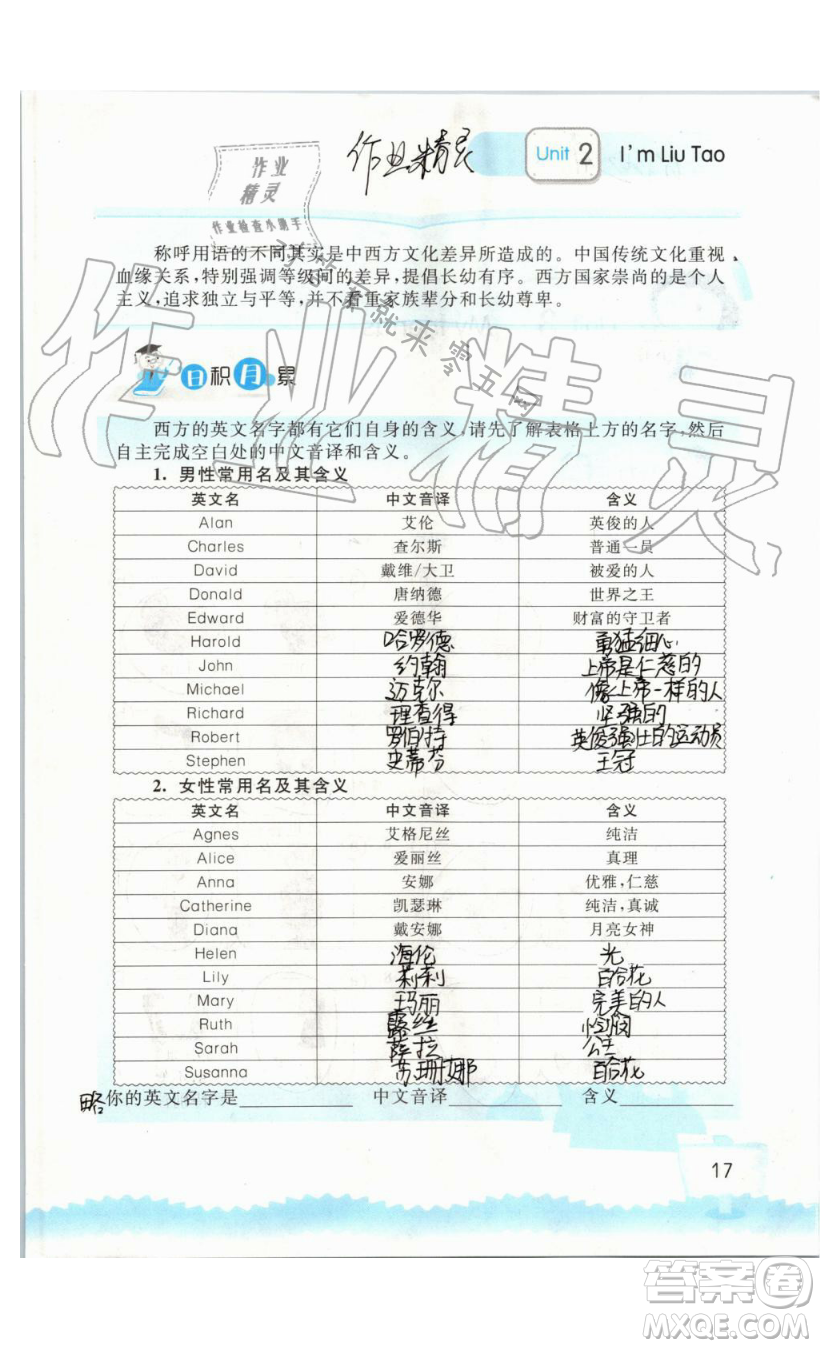 作业精灵
Unit 2 I'm Liu Tao
作业
精灵
作业检查小助手
称呼用语的不同其实是中西方文化差异所造成的。中国传统文化重视
血缘关系,特别强调等级间的差异,提倡长幼有序。西方国家崇尚的是个人
主义,追求独立与平等,并不看重家族辈分和长幼尊卑。
日积月累
西方的英文名字都有它们自身的含义,请先了解表格上方的名字,然后
自主完成空白处的中文音译和含义。
1. 男性常用名及其含义
英文名 中文音译 含义
Alan 艾伦 英俊的人
Charles 查尔斯 普通一员
David 戴维/大卫 被爱的人
Donald 唐纳德 世界之王
Edward 爱德华 财富的守卫者
Harold 哈罗德 勇猛细心
John 约翰 上帝是仁慈的
Michael 迈克尔 像上帝一样的人
Richard 理查得 坚强的
Robert 罗伯特 英俊强仕的运动员
Stephen 史蒂芬 王冠
2. 女性常用名及其含义
英文名 中文音译 含义
Agnes 艾格尼丝 纯洁
Alice 爱丽丝 真理
Anna 安娜 优雅,仁慈
Catherine 凯瑟琳 纯洁,真诚
Diana 戴安娜 月亮女神
Helen 海伦 光
Lily 莉莉 百合花
Mary 玛丽 完美的人
Ruth 露丝
Sarah 萨拉 公主
Susanna 苏珊娜 百合花
略 你的英文名字是 中文音译 含义
17
作业精灵
答案卷
MXQE.COM